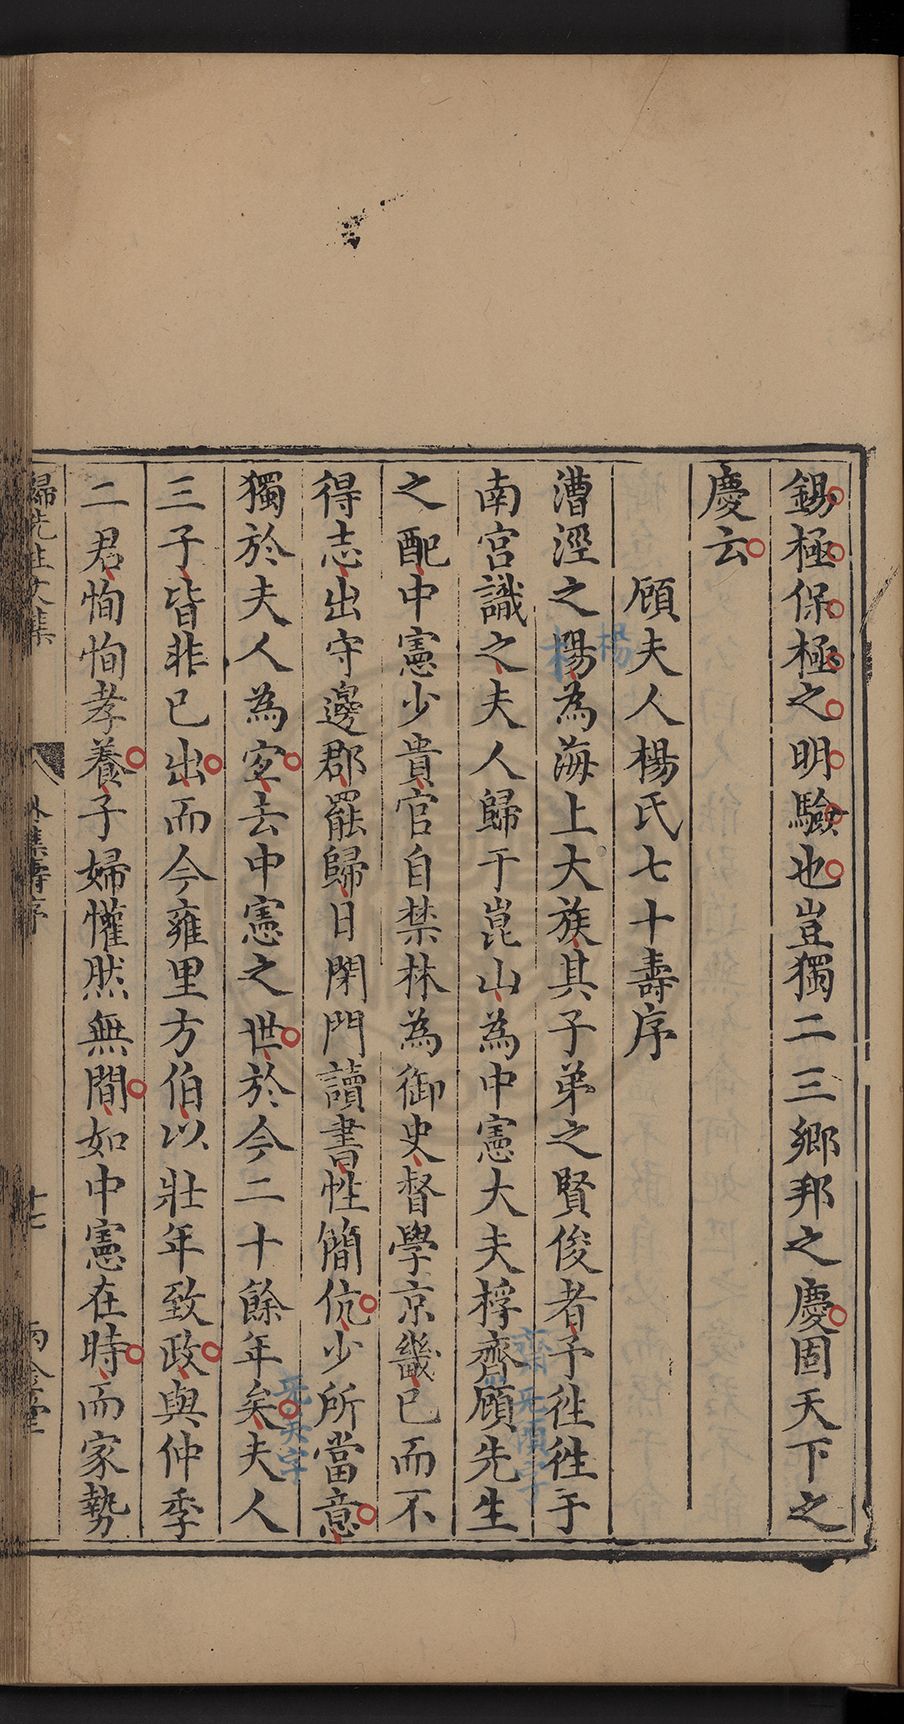 錫極保極之明驗也豈獨二三鄉邦之慶固天下之
慶云
顧夫人楊氏七十壽序
漕涇之陽為海上大族其子弟之賢俊者予徃徃于
楊
南宮識之夫人歸于崑山為中憲大夫桴齋顧先生
之配中憲少貴官自禁林為御史督學京畿已而不
得志出守邊郡罷歸日閉門讀書性簡伉少所當意
獨於夫人為宜去中憲之世於今二十餘年矣夫人
三子皆非已出而今雍里方伯以壯年致政與仲季
二君恂恂孝養子婦懽然無間如中憲在時而家勢
歸先生文集
外集壽序
十七